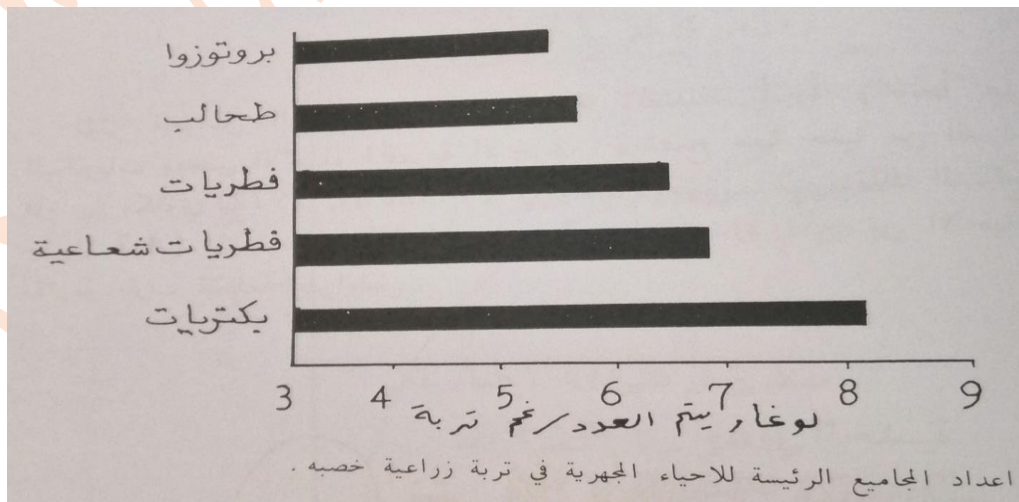 بروتوزوا
طحالب
فطريات
فطريات شعاعية
بكتريات
3 4 5 6 7 8 9
لوغاريتم العدد/غم تربة
اعداد المجاميع الرئيسة للاحياء المجهرية في تربة زراعية خصبه .